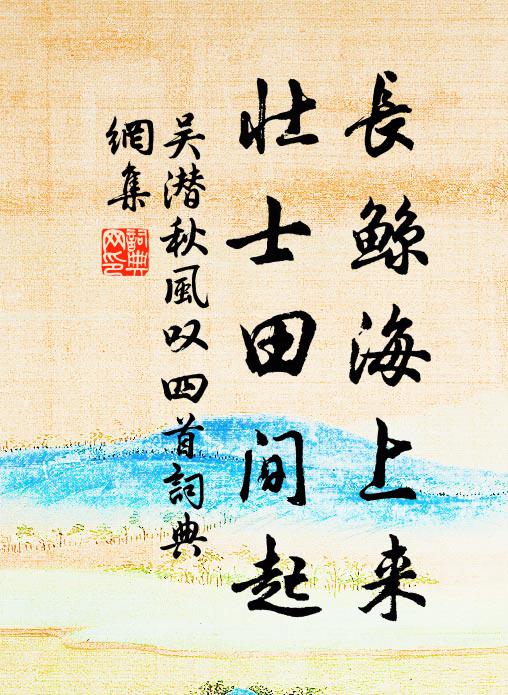 長鯨海上来
壮士田间起
吴潜秋風叹四首詞典
網集
詞典
网印